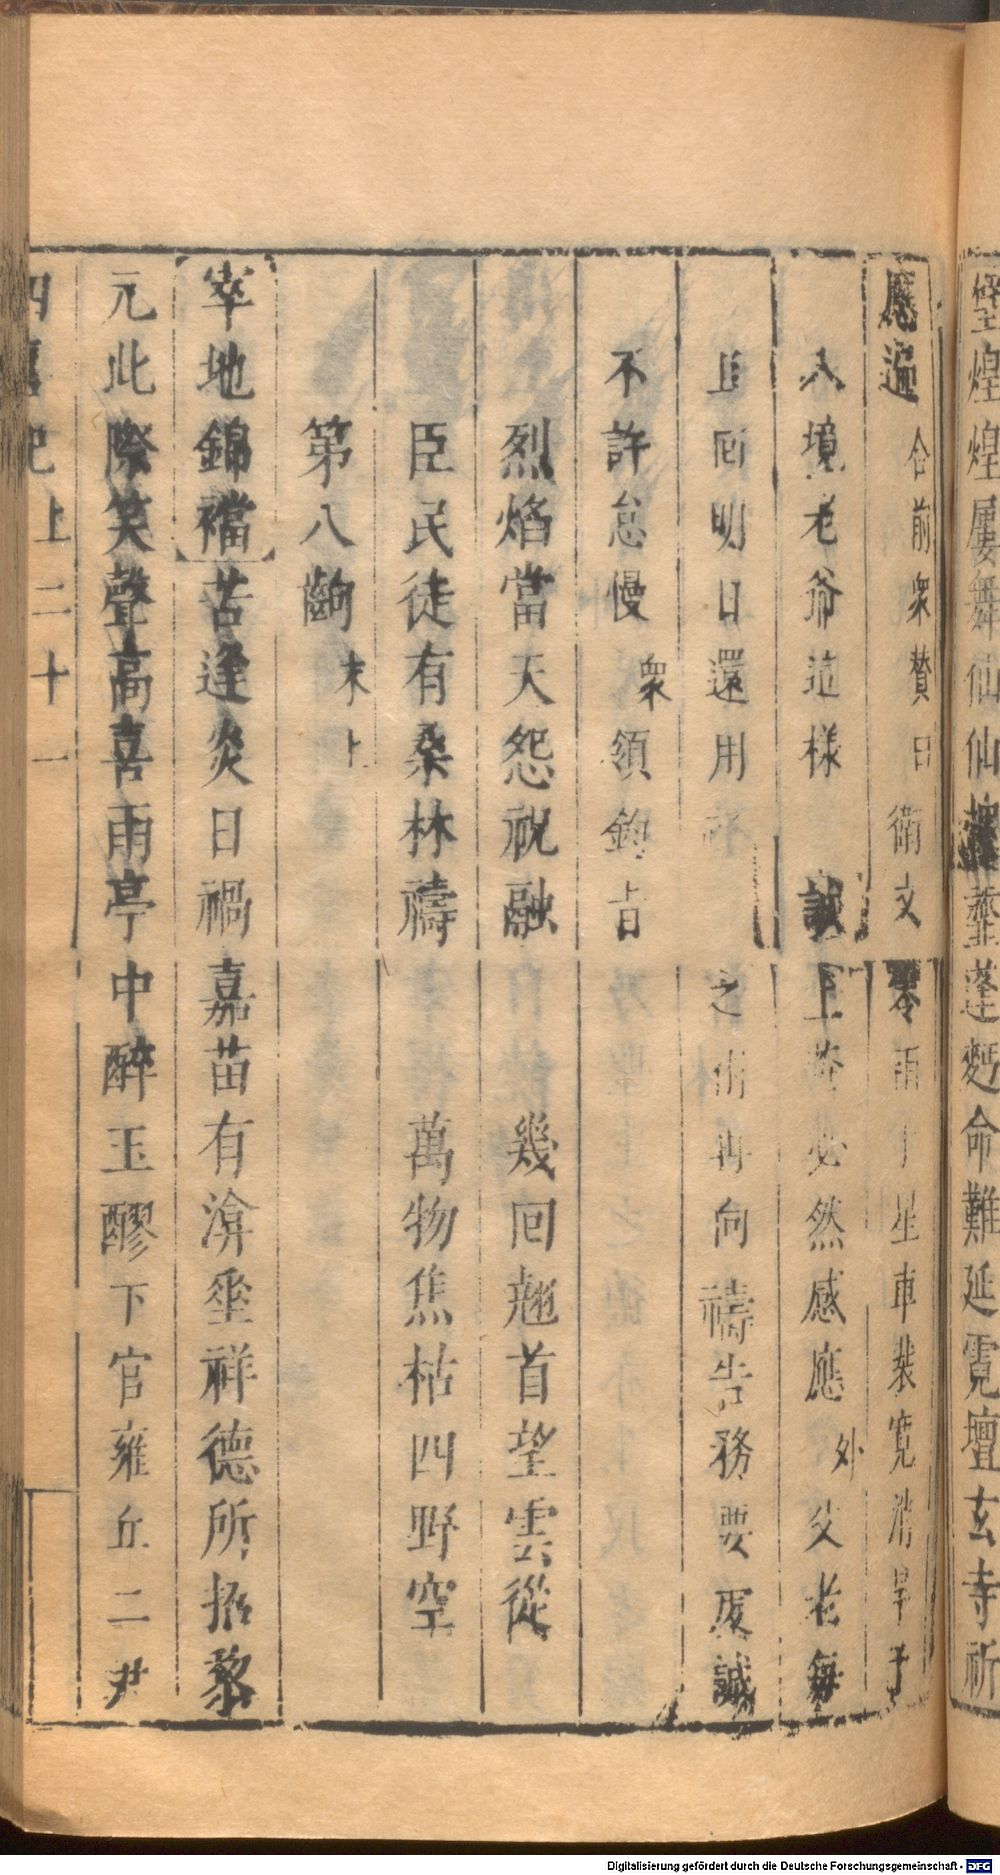 煌煌屢舞仙仙
蓬麪命難延霓壇玄寺祈
應遍合前衆贊曰衛文零雨星車裴寛消旱
入境老爺這樣誠必然感應外父老每
且回明日還用之術再向禱告務要虔誠
不許怠慢衆領鈞旨
烈焰當天怨祝融　幾回翹首望雲從
臣民徒有桑林禱　萬物焦枯四野空
第八齣末上
宰地錦襠苦逢炎日禍嘉苗有渰垂祥德所招黎
元此際笑聲高喜雨亭中醉玉醪下官雍丘二尹
四喜記上二十一
Digitalisierung gefördert durch die Deutsche Forschungsgemeinschaft - DFG